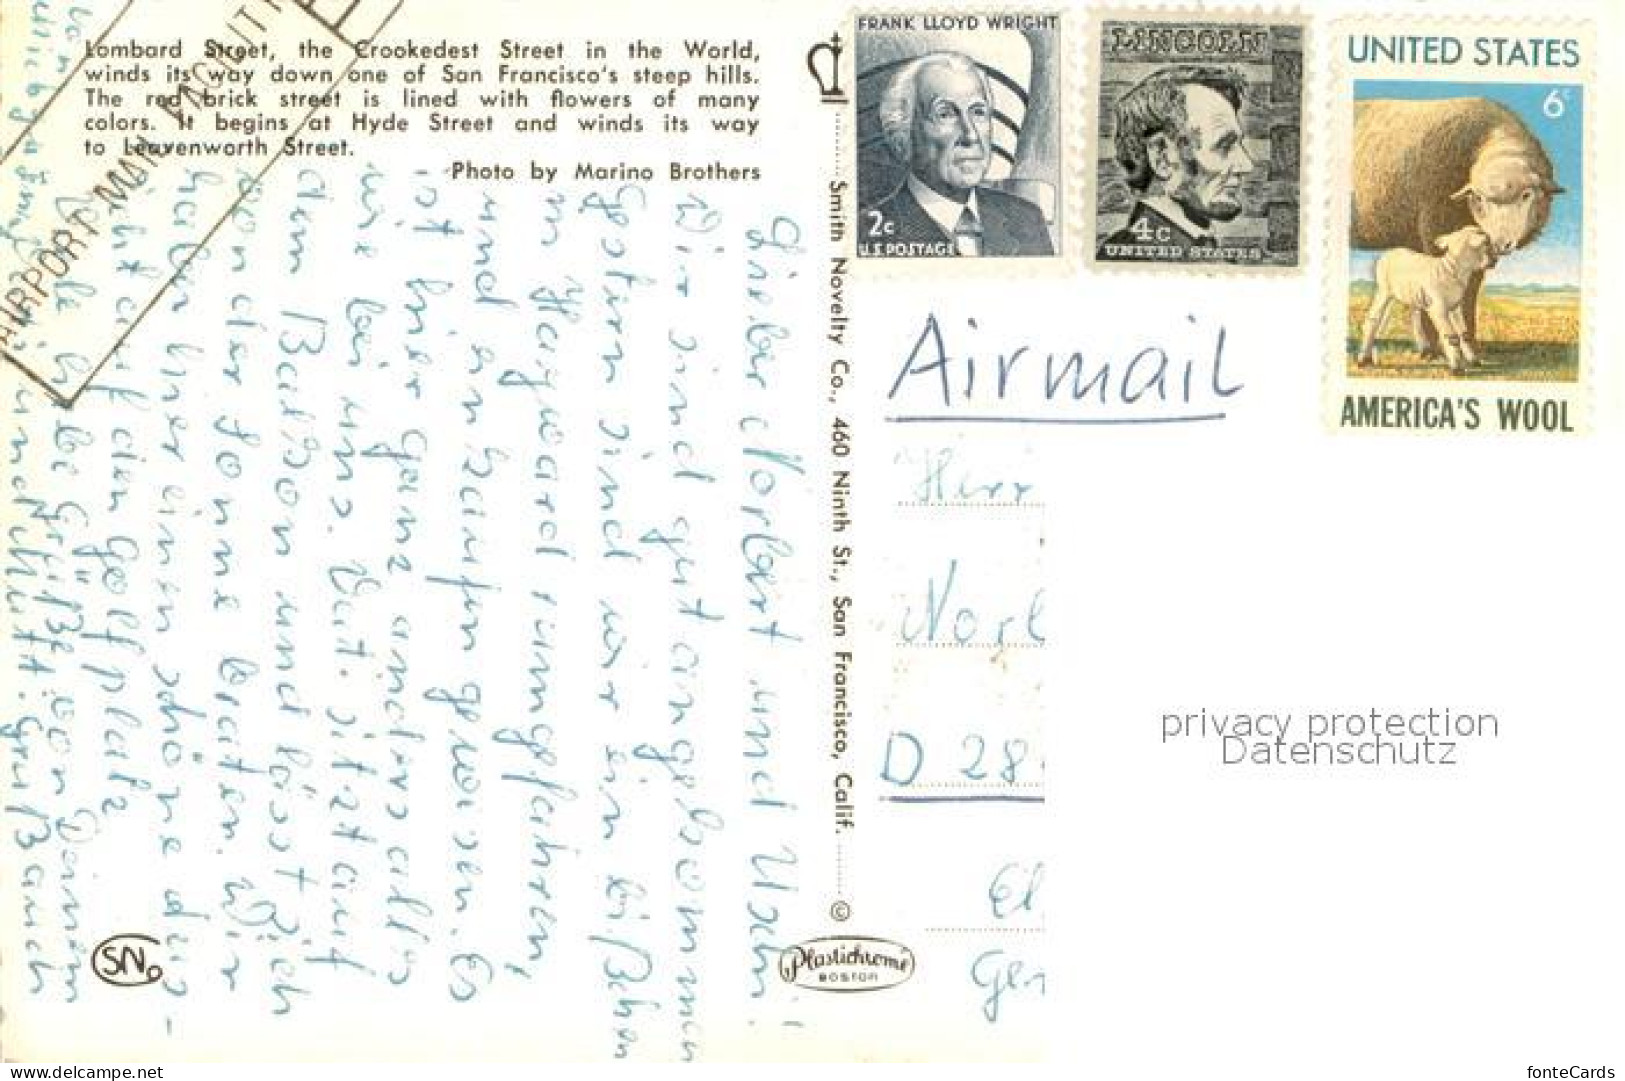 Lombard Street, the Crookedest Street in the World,
winds its way down one of San Francisco's steep hills.
The red brick street is lined with flowers of many
colors. It begins at Hyde Street and winds its way
to Leavenworth Street.
Photo by Marino Brothers
AIRPORT MAIL FACILITY
Smith Novelty Co., 460 Ninth St., San Francisco, Calif.
©
Plastichrome
BOSTON
SN
FRANK LLOYD WRIGHT
2c
U.S. POSTAGE
LINCOLN
4c
UNITED STATES
UNITED STATES
6c
AMERICA'S WOOL
Airmail
Herr
D 28
Lieber Norbert und Uschi!
Wir sind gut angekommen
Gestern sind wir ein bißchen
in Hayward rumgefahren,
und einkaufen gewesen. Es
ist hier ganz anders alles
wie bei uns. Vati sitzt auf
dem Balkon und lässt sich
von der Sonne braten. Wir
haben hier eine schöne Aus-
sicht auf den Golfplatz
Viele liebe Grüße von Deinem
und Mutti. Gruß auch
privacy protection
Datenschutz
www.delcampe.net
fonteCards